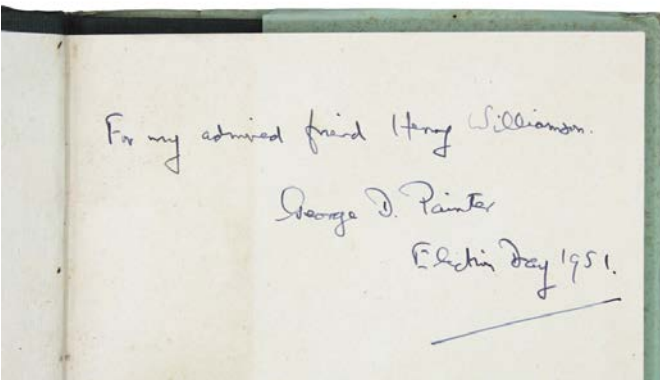 For my admired friend Henry Williamson.
George D. Painter
Election Day 1951.